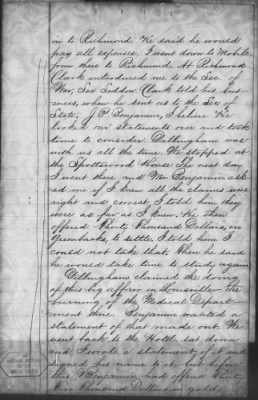 in to Richmond. He said he would
pay all expences. I went down to Mobile
from there to Richmond. At Richmond
Clark introduced me to the Sec of
War, Sec Seddon. Clark told his bus-
iness, when he sent us to the Sec of
State, J. P. Benjamin, I believe. He
looked our statements over and took
time to consider. Dillingham was
with us all the time. We stopped at
the Spotteswood House. The next day
I went there and Mr Benjamin ask
ed me if I knew all the claims were
right and correct. I told him they
were as far as I knew. He then
offered Thirty Thousand Dollars, in
Greenbacks, to settle. I told him I
could not take that. Then he said
he would take time to study again
Dillingham claimed the doing
of this big affair in Louisville the
burning of the Medical Depart-
ment there. Benjamin wanted a
statement of that made out. We
went back to the Hotel, sat down
and I wrote a statement of it and
signed his name to it, but before
this Benjamin had offered Thirty
Five Thousand Dollars in gold